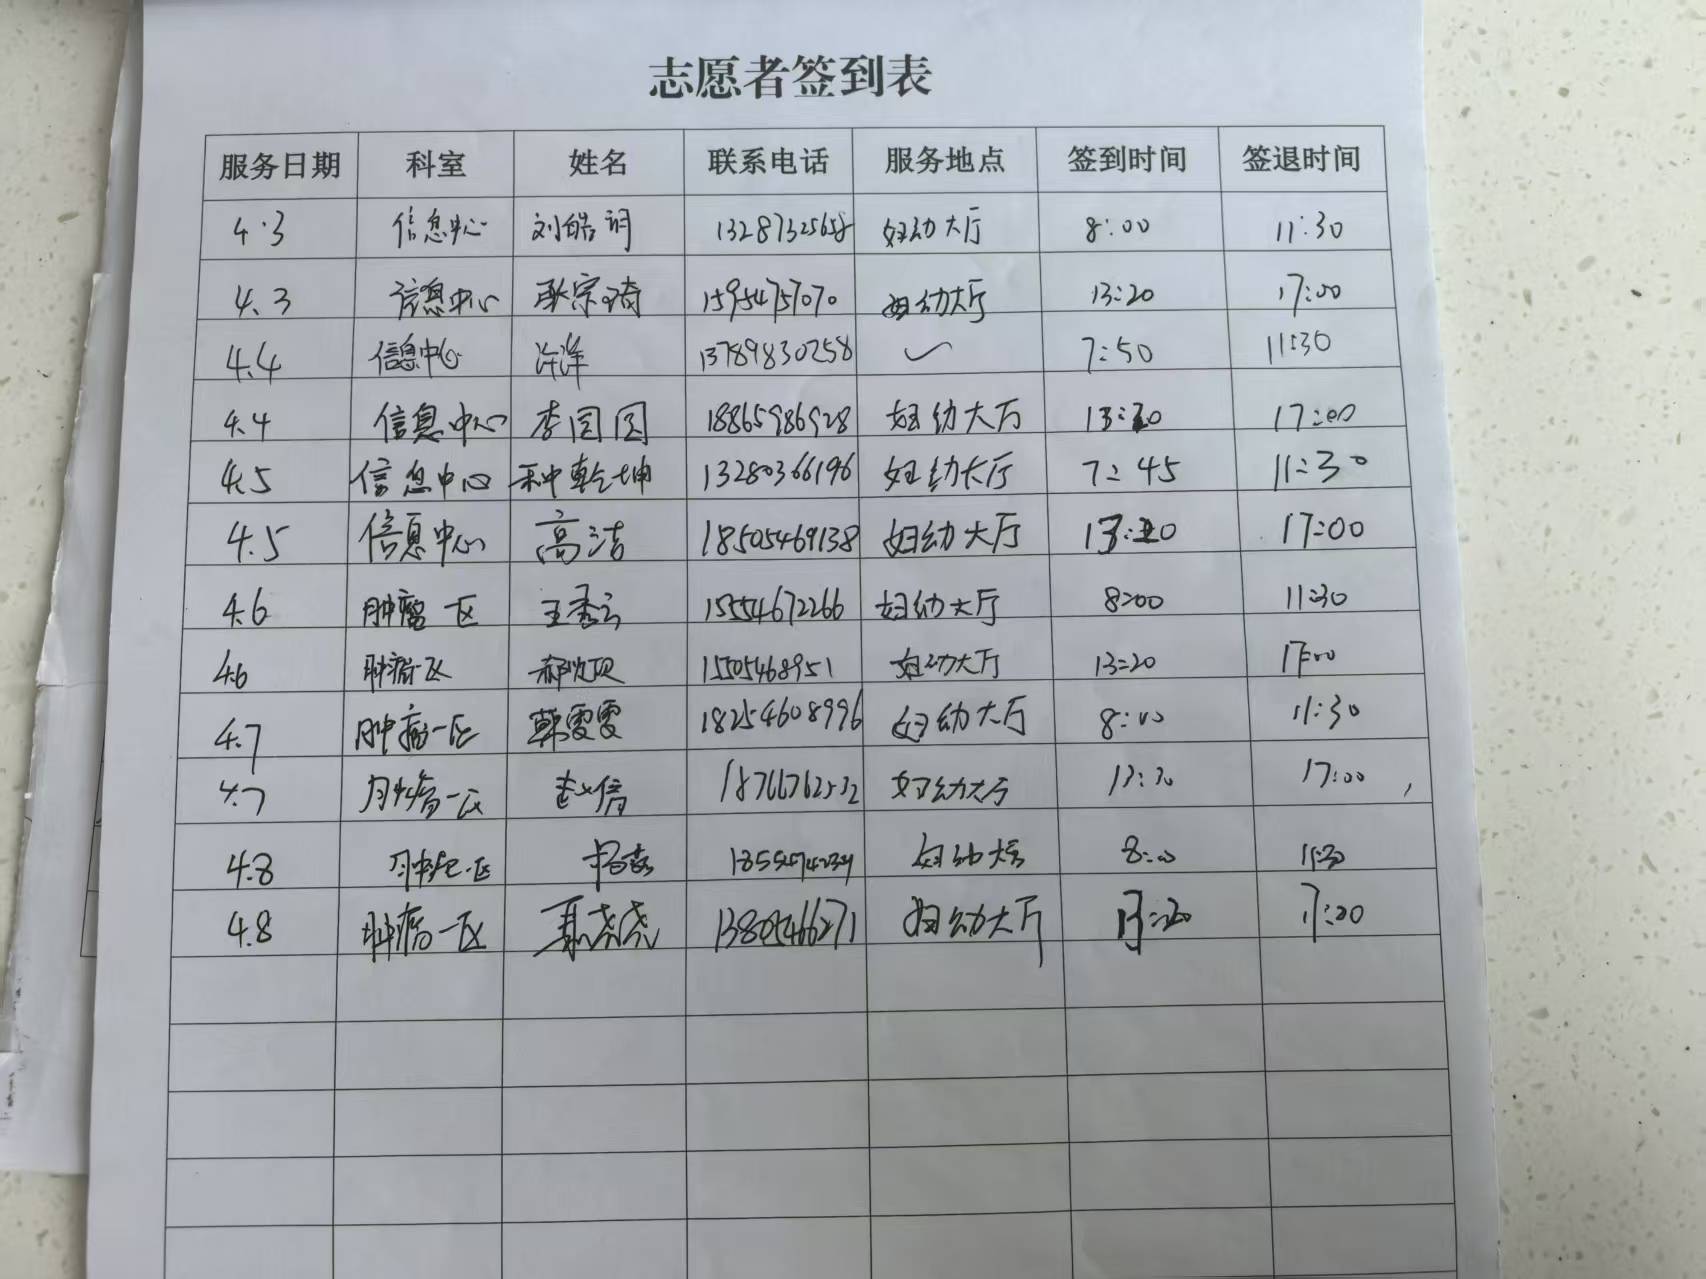 志愿者签到表
服务日期 科室 姓名 联系电话 服务地点 签到时间 签退时间
4.3 信息中心 刘皓 妇幼大厅 8:00 11:30
4.3 信息中心 耿宗琦 15954757070 妇幼大厅 13:20 17:00
4.4 信息中心 许洋 13789830258 7:50 11:30
4.4 信息中心 李园园 18865986928 妇幼大厅 17:00
4.5 信息中心 种乾坤 13280366196 妇幼大厅 7:45 11:30
4.5 信息中心 高洁 18505469138 妇幼大厅 17:00
4.6 肿瘤一区 王秀云 15554672266 妇幼大厅 8:00 11:30
4.6 肿瘤一区 15505468951 妇幼大厅 13:20 17:00
4.7 肿瘤一区 韩雯雯 18254608996 妇幼大厅 8:00 11:30
4.7 肿瘤一区 赵倩 妇幼大厅 17:00
4.8 肿瘤一区 妇幼大厅 8:00 11:30
4.8 肿瘤一区 13805466271 妇幼大厅 13:20 17:00